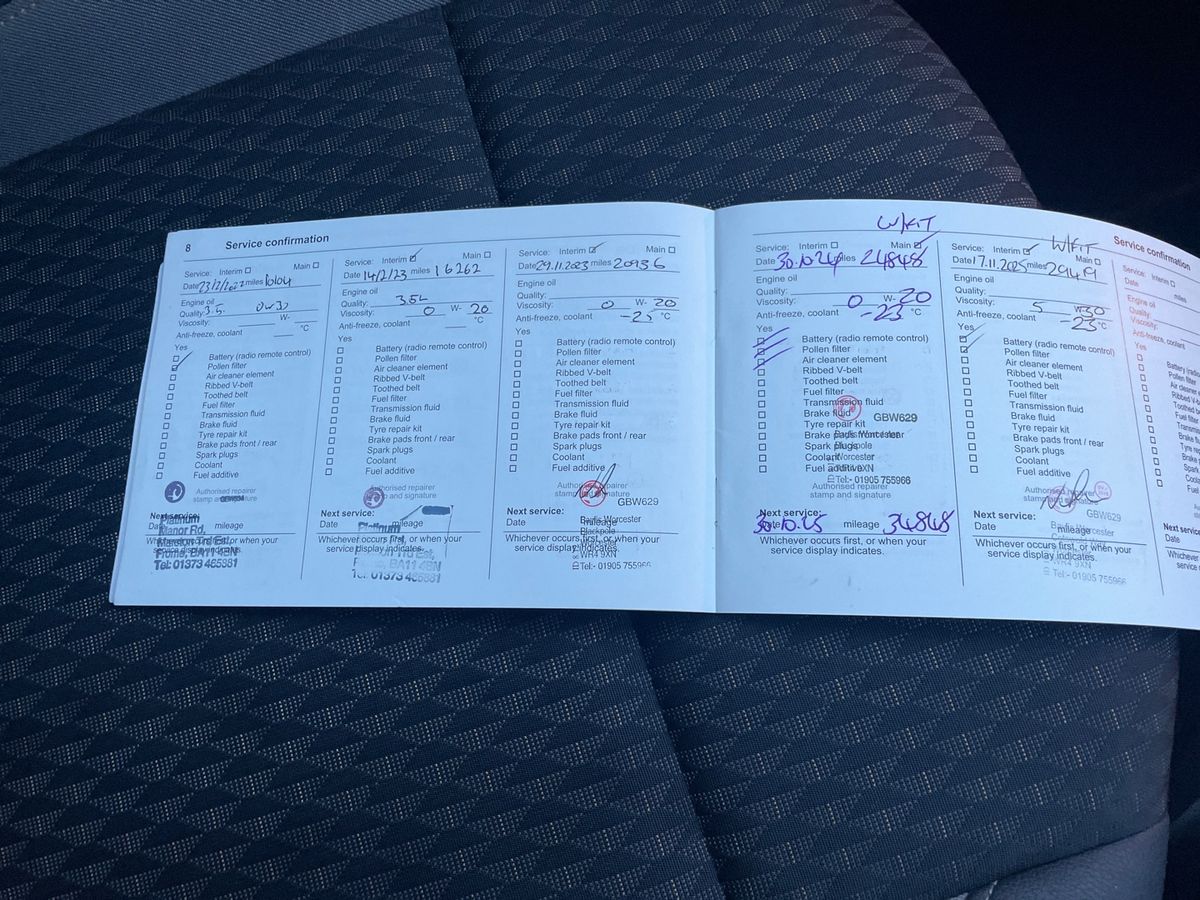 8 Service confirmation
Service: Interim Main
Date 23/2/2022 miles
Engine oil
Quality: 3.5. 0w30
Viscosity: W-
Anti-freeze, coolant °C
Yes
Battery (radio remote control)
Pollen filter
Air cleaner element
Ribbed V-belt
Toothed belt
Fuel filter
Transmission fluid
Brake fluid
Tyre repair kit
Brake pads front / rear
Spark plugs
Coolant
Fuel additive
Authorised repairer
stamp and signature
Next service:
Date mileage
Whichever occurs first, or when your
service display indicates.
Platinum
Manor Rd,
Marston Trd Est,
Frome, BA11 4BN
Tel: 01373 465881
Service: Interim Main
Date 14/2/23 miles 16262
Engine oil
Quality: 3.5L
Viscosity: 0 W- 20
Anti-freeze, coolant °C
Yes
Battery (radio remote control)
Pollen filter
Air cleaner element
Ribbed V-belt
Toothed belt
Fuel filter
Transmission fluid
Brake fluid
Tyre repair kit
Brake pads front / rear
Spark plugs
Coolant
Fuel additive
Authorised repairer
stamp and signature
Next service:
Date mileage
Whichever occurs first, or when your
service display indicates.
Platinum
BA11 4BN
Tel: 01373 465881
Service: Interim Main
Date 29.11.2023 miles 20936
Engine oil
Quality:
Viscosity: 0 W- 20
Anti-freeze, coolant -25 °C
Yes
Battery (radio remote control)
Pollen filter
Air cleaner element
Ribbed V-belt
Toothed belt
Fuel filter
Transmission fluid
Brake fluid
Tyre repair kit
Brake pads front / rear
Spark plugs
Coolant
Fuel additive
Authorised repairer
stamp and signature
GBW629
Next service:
Date mileage
Whichever occurs first, or when your
service display indicates.
Worcester
Blackpole
Worcester
WR4 9XN
Tel:- 01905 755966
W/KIT
Service: Interim Main
Date 30.10.24 miles 24848
Engine oil
Quality:
Viscosity: 0 W- 20
Anti-freeze, coolant -25 °C
Yes
Battery (radio remote control)
Pollen filter
Air cleaner element
Ribbed V-belt
Toothed belt
Fuel filter
Transmission fluid
Brake fluid
GBW629
Tyre repair kit
Brake pads front / rear
Spark plugs
Coolant
Fuel additive
Worcester
Worcester
Tel:- 01905 755966
Authorised repairer
stamp and signature
Next service:
Date 30.10.25 mileage 34848
Whichever occurs first, or when your
service display indicates.
W/KIT
Service: Interim Main
Date 17.11.2025 miles 29419
Engine oil
Quality:
Viscosity: 5 W 30
Anti-freeze, coolant -25 °C
Yes
Battery (radio remote control)
Pollen filter
Air cleaner element
Ribbed V-belt
Toothed belt
Fuel filter
Transmission fluid
Brake fluid
Tyre repair kit
Brake pads front / rear
Spark plugs
Coolant
Fuel additive
Authorised repairer
stamp and signature
GBW629
Next service:
Date mileage
Whichever occurs first, or when your
service display indicates.
WR4 9XN
Tel:- 01905 755966
Service confirmation
Service: Interim
Date miles
Engine oil
Quality:
Viscosity:
Anti-freeze, coolant
Yes
Next service
Date
Whichever
service